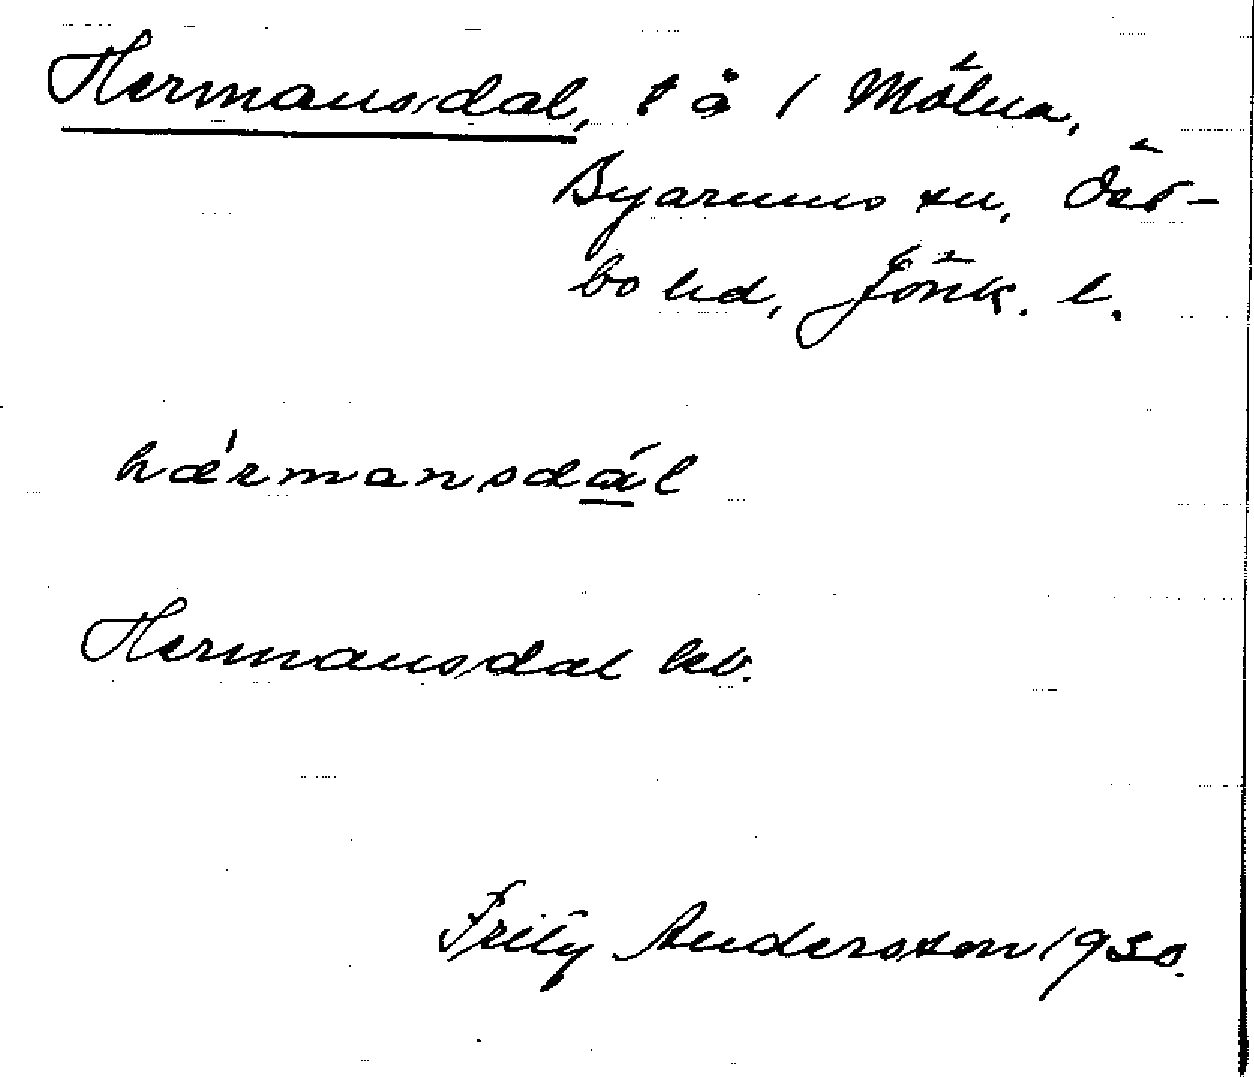 Hermansdal, t å 1 Mölna,
Byarums sn, Öst-
bo hd, Jönk. l.
hæ'rmansdál
Hermansdal kb.
Fritz Andersson 1930.